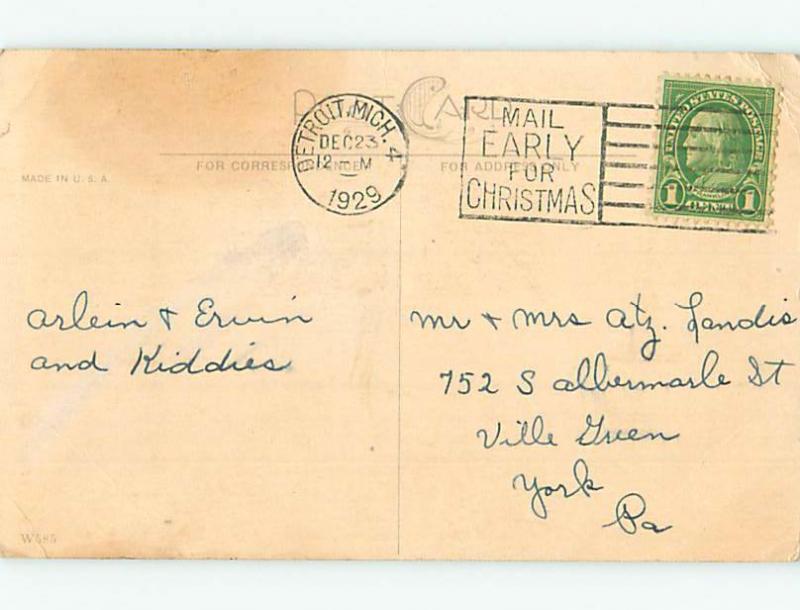 POST CARD
DETROIT, MICH. 4
DEC 23
12 - M
1929
MAIL
EARLY
FOR
CHRISTMAS
UNITED STATES POSTAGE
1 1
FOR CORRESPONDENCE
FOR ADDRESS ONLY
MADE IN U. S. A.
Arlein + Erwin
and Kiddies
Mr + Mrs Atz. Landis
752 S Albermarle St
Ville Green
York
Pa
W585